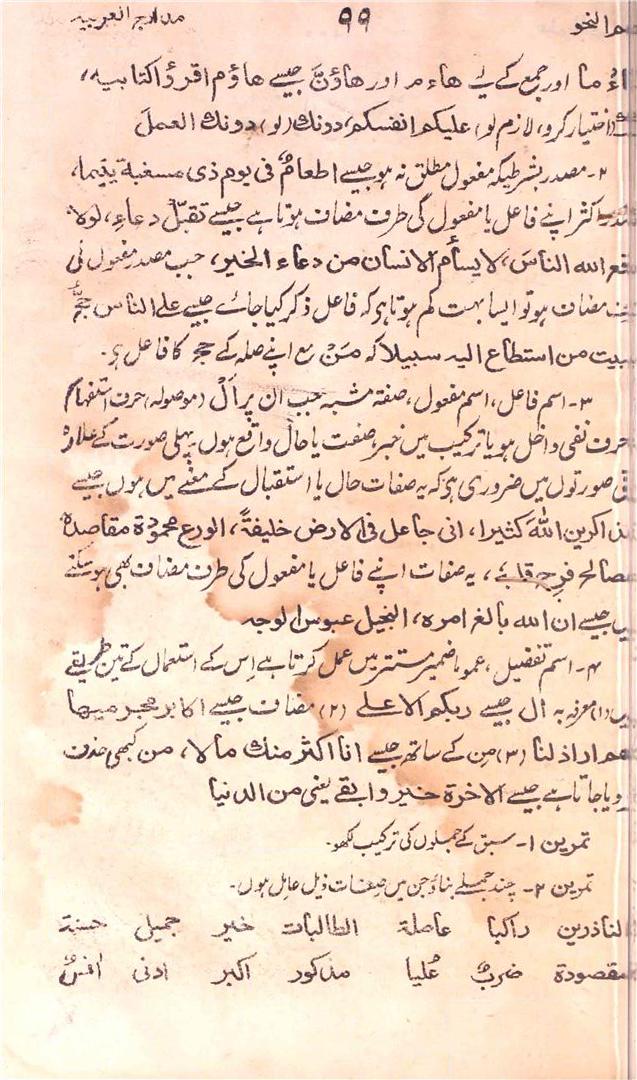 النحو ۹۹ مدارج العربیہ
ما اور جمع کے لئے ھاءم اور ھاؤنَّ جیسے ھاؤم اقرؤاکتابیہ،
(اختیار کرو، لازم لو) علیکم انفسکم، دونك (لو) دونك العملَ
۲۔ مصدر بشرطیکہ مفعول مطلق نہ ہو جیسے اطعامٌ فی یوم ذی مسغبة یتیما،
اکثر اپنے فاعل یا مفعول کی طرف مضاف ہوتا ہے جیسے تقبّل دعاءِ، لولا
الله الناسَ، لایسأم الانسان من دعاء الخیر، جب مصدر مفعول کی
مضاف ہو تو ایسا بہت کم ہوتا ہے کہ فاعل ذکر کیا جائے جیسے علی الناس حجُّ
من استطاع الیہ سبیلا کہ مَنْ مع اپنے صلہ کے حج کا فاعل ہے۔
۳۔ اسم فاعل، اسم مفعول، صفة مشبہ جب ان پر اَلْ (موصولہ) حرف استفہام
حرف نفی داخل ہو یا ترکیب میں خبر، صفت یا حال واقع ہوں۔ پہلی صورت کے علاوہ
صورتوں میں ضروری ہے کہ یہ صفات حال یا استقبال کے معنے میں ہوں جیسے
اللهَ کثیرا، انی جاعل فی الارض خلیفةً، الورع محمودة مقاصدہ
یہ صفات اپنے فاعل یا مفعول کی طرف مضاف بھی ہو سکتے
جیسے ان الله بالغ امرہ، البخیل عبوس الوجہ
۴۔ اسم تفضیل، عموما ضمیر مستتر میں عمل کرتا ہے اس کے استعمال کے تین طریقے
(۱) معرفہ بہ ال جیسے ربکم الاعلی (۲) مضاف جیسے اکابر مجرمیھا
اراذلنا (۳) من کے ساتھ جیسے انا اکثر منك مالا، من کبھی حذف
جاتا ہے جیسے الاخرة خیر و ابقے یعنی من الدنیا
تمرین ۱۔ سبق کے جملوں کی ترکیب لکھو۔
تمرین ۲۔ چند جملے بناؤ جن میں صفات ذیل عامل ہوں۔
الناذرین راکبا عاصلة الطالبات خیر جمیل حسنة
مقصودة ضربٌ عُلیا مذکور اکبر ادنی